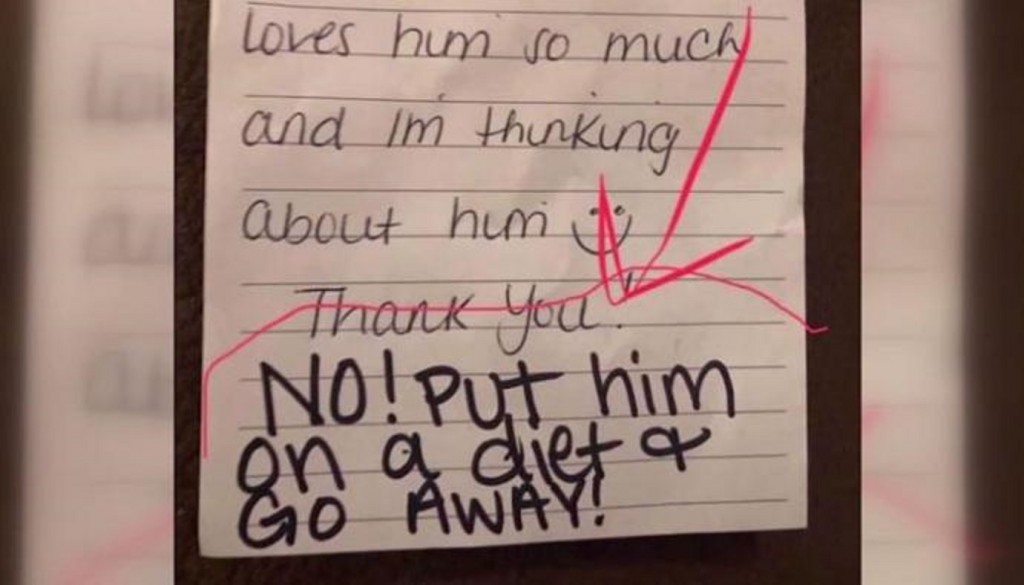 loves him so much
and Im thinking
about him
Thank You.
NO! PUT him
on a diet &
GO AWAY!